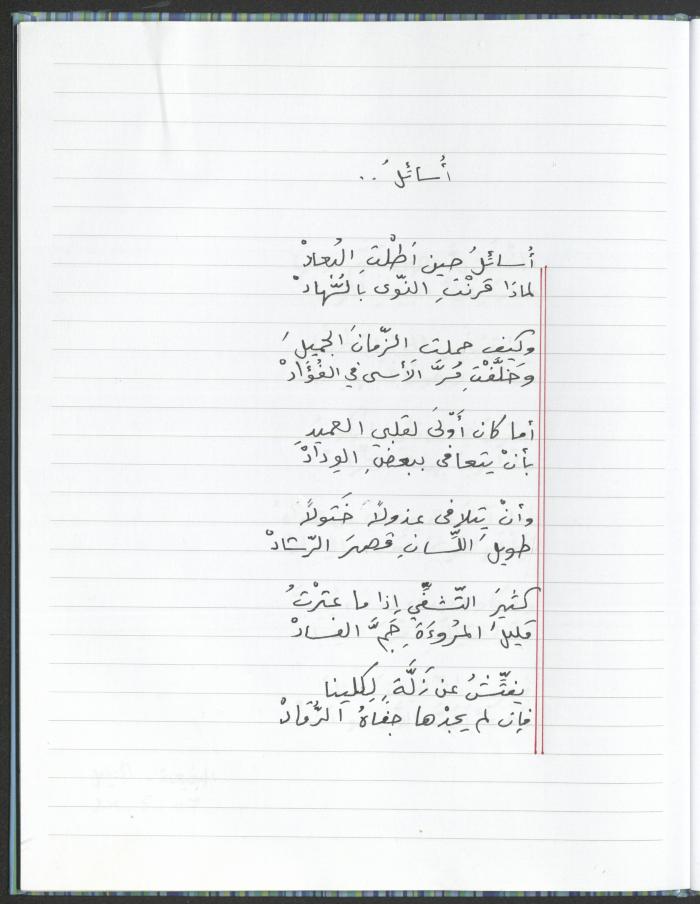 أُسائلُ ..
أُسائلُ حين أَطلْتِ البُعادْ
لماذا قرنْتِ النّوى بالسُّهادْ
وكيف حملت الزّمانَ الجميلَ
وخَلَّفْتِ مُرَّ الأسى في الفُؤَادْ
أما كان أَوْلَى لقلبي العميدِ
بأنْ يتعافى ببعضِ الوِدادْ
وأنْ يتلافى عذولاً خَتولاً
طويلَ اللّسانِ قصيرَ الرّشادْ
كثيرَ التّشفّي إذا ما عثرْتُ
قليلَ المُروءَةِ جَمَّ الفسادْ
يفتّشُ عن زَلَّةٍ لِكلينا
فإن لم يجدْها جفاهُ الرُّقادْ